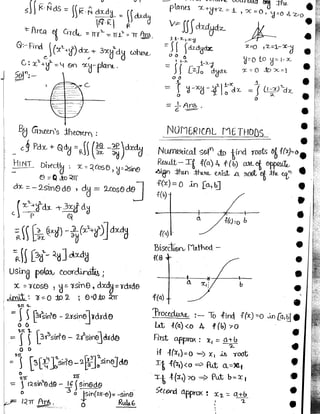 ∫∫ R̂·N̂ ds = ∫∫ R̂·N̂ dxdy / |N̂·R̂| = ∫∫ dxdy
= Area of Circle = πr² = π1² = π Ans.
Q:- Find ∫(x²+y²)dx + 3xy²dy where
C: x²+y²=4 on xy-plane.
Solⁿ:-
C
By Green's theorem:
∮ Pdx + Qdy = ∬(∂Q/∂x - ∂P/∂y) dxdy
HINT Directly: x = 2cosθ, y = 2sinθ
θ = 0 to 2π
dx = -2sinθ dθ, dy = 2cosθ dθ
∫ (x²+y²)dx + 3xy²dy
P Q
= ∬ [∂/∂x (3xy²) - ∂/∂y (x²+y²)] dxdy
= ∬ [3y² - 2y] dxdy
Using polar coordinates;
x = rcosθ, y = rsinθ, dxdy = rdrdθ
limit: r=0 to 2; θ=0 to 2π
= ∫∫ [3r²sin²θ - 2rsinθ] rdrdθ
= ∫∫ [3r³sin²θ - 2r²sinθ] drdθ
= ∫ [3[r⁴/4]sin²θ - 2[r³/3]sinθ] dθ
= ∫ 12sin²θdθ - 16/3 ∫ sinθdθ
sin(2π-θ) = -sinθ
= 12π Ans. Rule 6
the
planes x+y+z=1, x=0, y=0 & z=0
V = ∭ dxdydz
= ∭ dzdydx z=0, z=1-x-y
y=0 to y=1-x
x=0 to x=1
= 1/6 Ans.
NUMERICAL METHODS
Numerical solⁿ to find roots of f(x)=0
Result- If f(a) & f(b) are of opposite
sign then there exist a root of the eqⁿ
f(x)=0 in [a,b]
f(b)
a f(x)=0 b
f(a)
Bisection Method -
f(b)
a x₁ b
f(a)
Procedure:- To find f(x)=0 in [a,b]
Let f(a)<0 & f(b)>0
First approx: x₁ = a+b/2
if f(x₁)=0 ⇒ x₁ is root
If f(x₁)<0 ⇒ Put a=x₁
If f(x₁)>0 ⇒ Put b=x₁
Second approx: x₂ = a+b/2